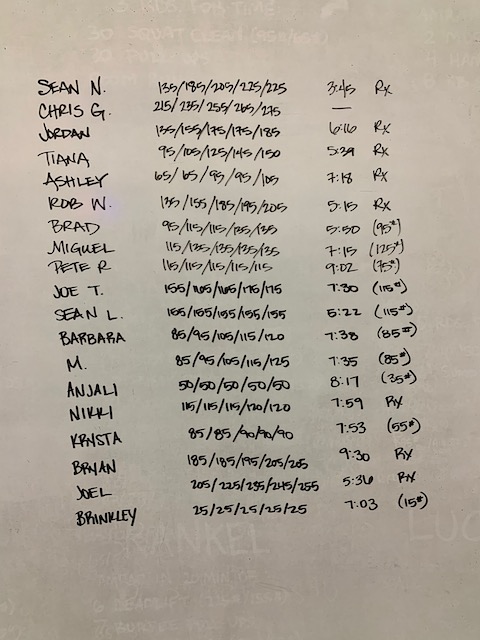 30 SQUAT CLEAN
SEAN N. 135/185/205/225/225 3:45 RX
CHRIS G. 215/235/255/265/275 —
JORDAN 135/155/175/175/185 6:16 RX
TIANA 95/105/125/145/150 5:39 RX
ASHLEY 65/65/95/95/105 7:18 RX
ROB W. 135/155/185/195/205 5:15 RX
BRAD 95/115/115/135/135 5:50 (95#)
MIGUEL 115/135/135/135/135 7:15 (125#)
PETE R 115/115/115/115/115 9:02 (75#)
JOE T. 155/165/165/175/175 7:30 (115#)
SEAN L. 155/155/155/155/155 5:22 (115#)
BARBARA 85/95/105/115/120 7:38 (85#)
M. 85/95/105/115/125 7:35 (85#)
ANJALI 50/50/50/50/50 8:17 (35#)
NIKKI 115/115/115/120/120 7:59 RX
KRYSTA 85/85/90/90/90 7:53 (55#)
BRYAN 185/185/195/205/205 9:30 RX
JOEL 205/225/235/245/255 5:36 RX
BRINKLEY 25/25/25/25/25 7:03 (15#)
RANKEL LUC